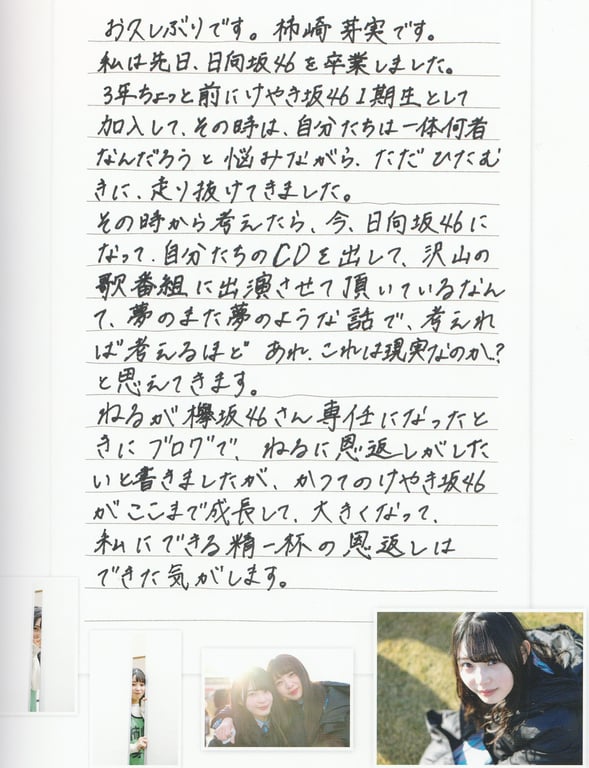 お久しぶりです。柿崎 芽実です。
私は先日、日向坂46を卒業しました。
3年ちょっと前にけやき坂46 1期生として
加入して、その時は、自分たちは一体何者
なんだろうと悩みながら、ただ ひたむ
きに、走り抜けてきました。
その時から考えたら、今、日向坂46に
なって、自分たちのCDを出して、沢山の
歌番組に出演させて頂いているなん
て、夢のまた夢のような話で、考えれ
ば考えるほど あれ、これは現実なのか?
と思えてきます。
ねるが欅坂46さん専任になったと
きにブログで、ねるに恩返しがした
いと書きましたが、かつてのけやき坂46
がここまで成長して、大きくなって、
私にできる精一杯の恩返しは
できた気がします。